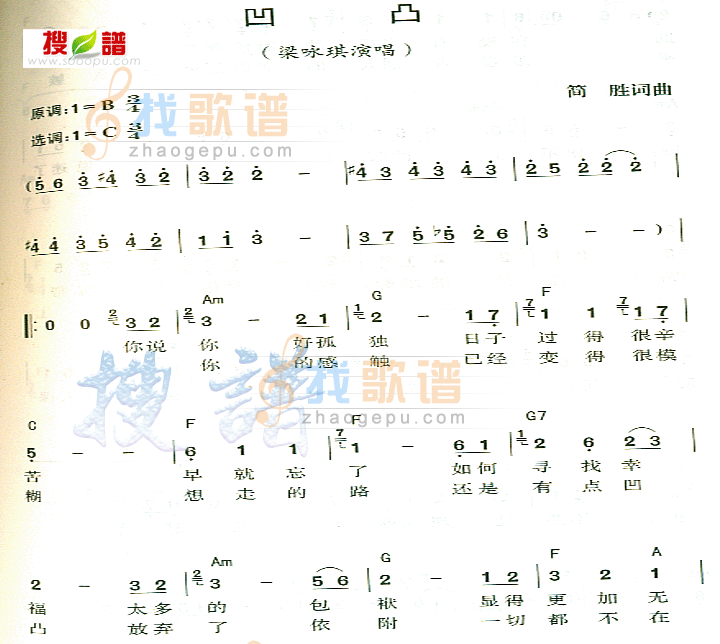 凹 凸
搜譜
www.sooopu.com
(梁咏琪演唱)
简 胜词曲
原调:1=B 3/4
选调:1=C 3/4
找歌谱
zhaogepu.com
(5 6 3 #4 3 2 | 3 2 2 - | #4 3 4 3 4 3 | 2 5 2 2 2 |
#4 4 3 5 4 2 | 1 1 3 - | 3 7 5 b5 2 6 | 3 - - ) |
Am G F
‖: 0 0 2 3 2 | 2 3 - 2 1 | 1 2 - 1 7 | 7 1 1 7 1 7 |
你说 你 好孤 独 日子 过 得 很辛
你 的感 触 已经 变 得 很模
搜譜
找歌谱
zhaogepu.com
C F F G7
5 - - | 6 1 1 | 7 1 - 6 1 | 1 2 6 2 3 |
苦 早 就 忘 了 如何 寻 找 幸
糊 想 走 的 路 还是 有 点 凹
Am G F A
2 - 3 2 | 2 3 - 5 6 | 2 - 1 2 | 3 2 1 |
福 太多 的 包 袱 显得 更 加 无
凸 放弃 了 依 附 一切 都 不 在